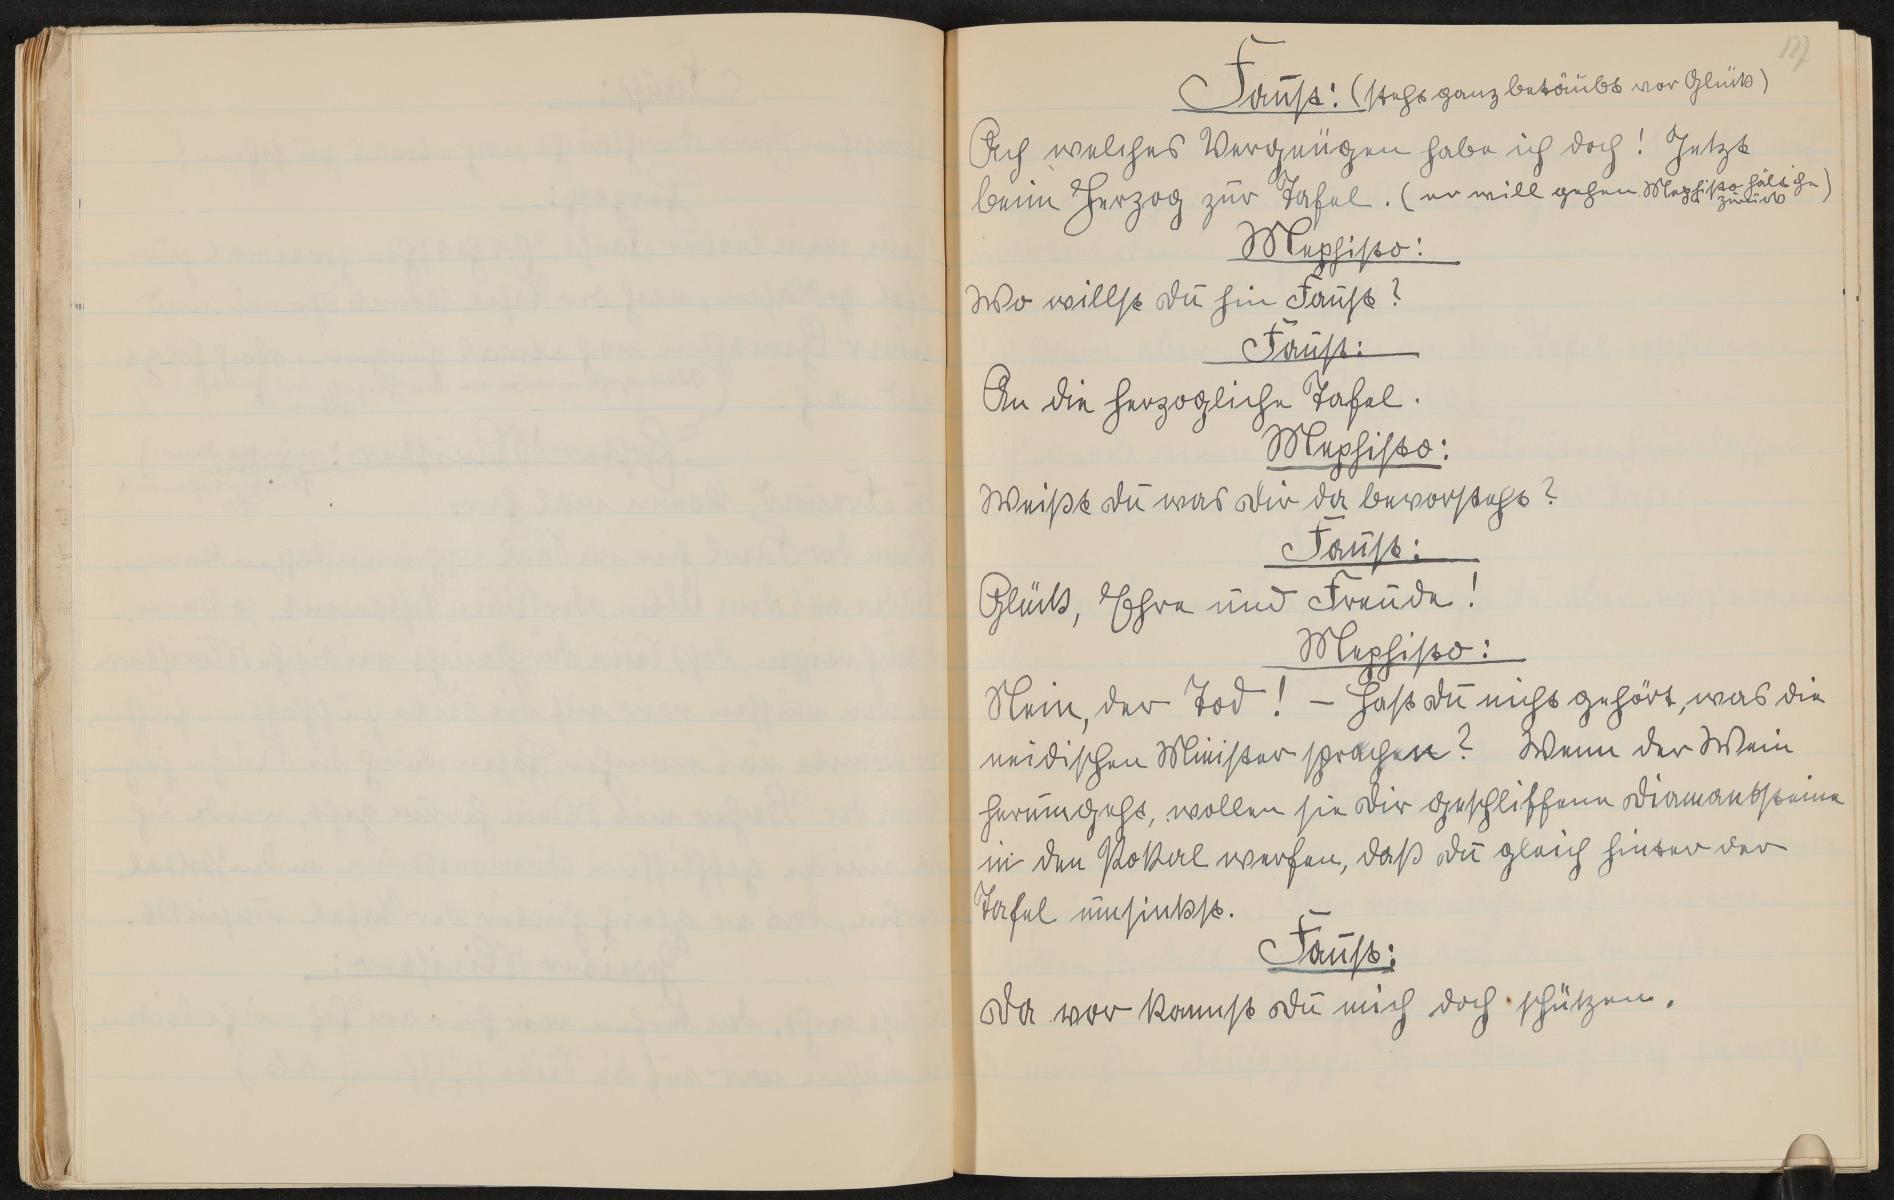 117
Faust: (steht ganz betäubt vor Glück)
Ach welches Vergnügen habe ich doch! Jetzt
beim Herzog zur Tafel. (er will gehen Mephisto hält ihn
zurück)
Mephisto:
Wo willst du hin Faust?
Faust:
An die herzogliche Tafel.
Mephisto:
Weißt du was dir da bevorsteht?
Faust:
Glück, Ehre und Freude!
Mephisto:
Nein, der Tod! – Hast du nicht gehört, was die
neidischen Minister sprachen? Wenn der Wein
herumgeht, wollen sie dir geschliffene Diamantsteine
in den Pokal werfen, daß du gleich hinter der
Tafel umsinkst.
Faust:
Da vor kannst du mich doch schützen.